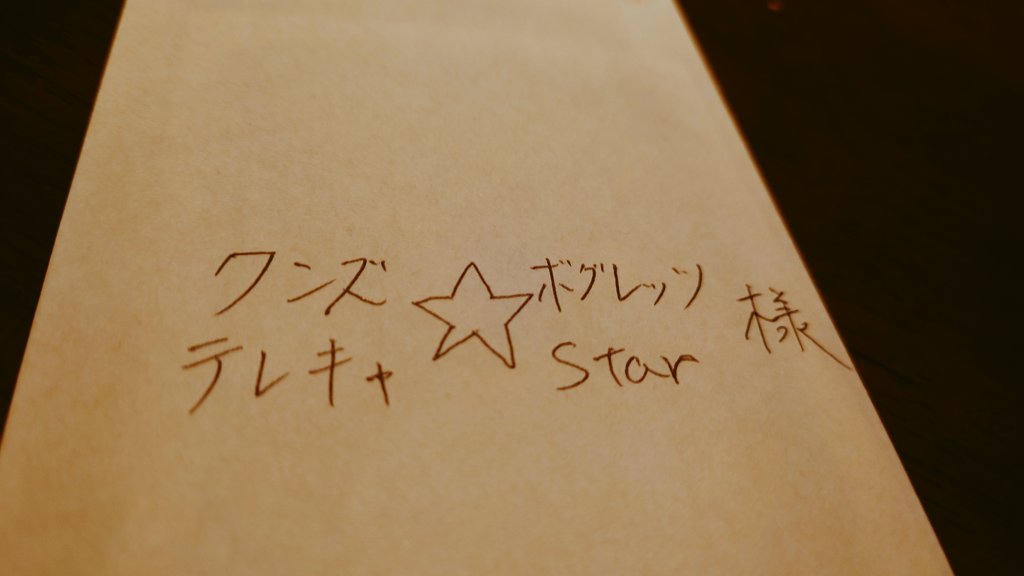 ワンズ☆ボグレッツ 様
テレキャ Star